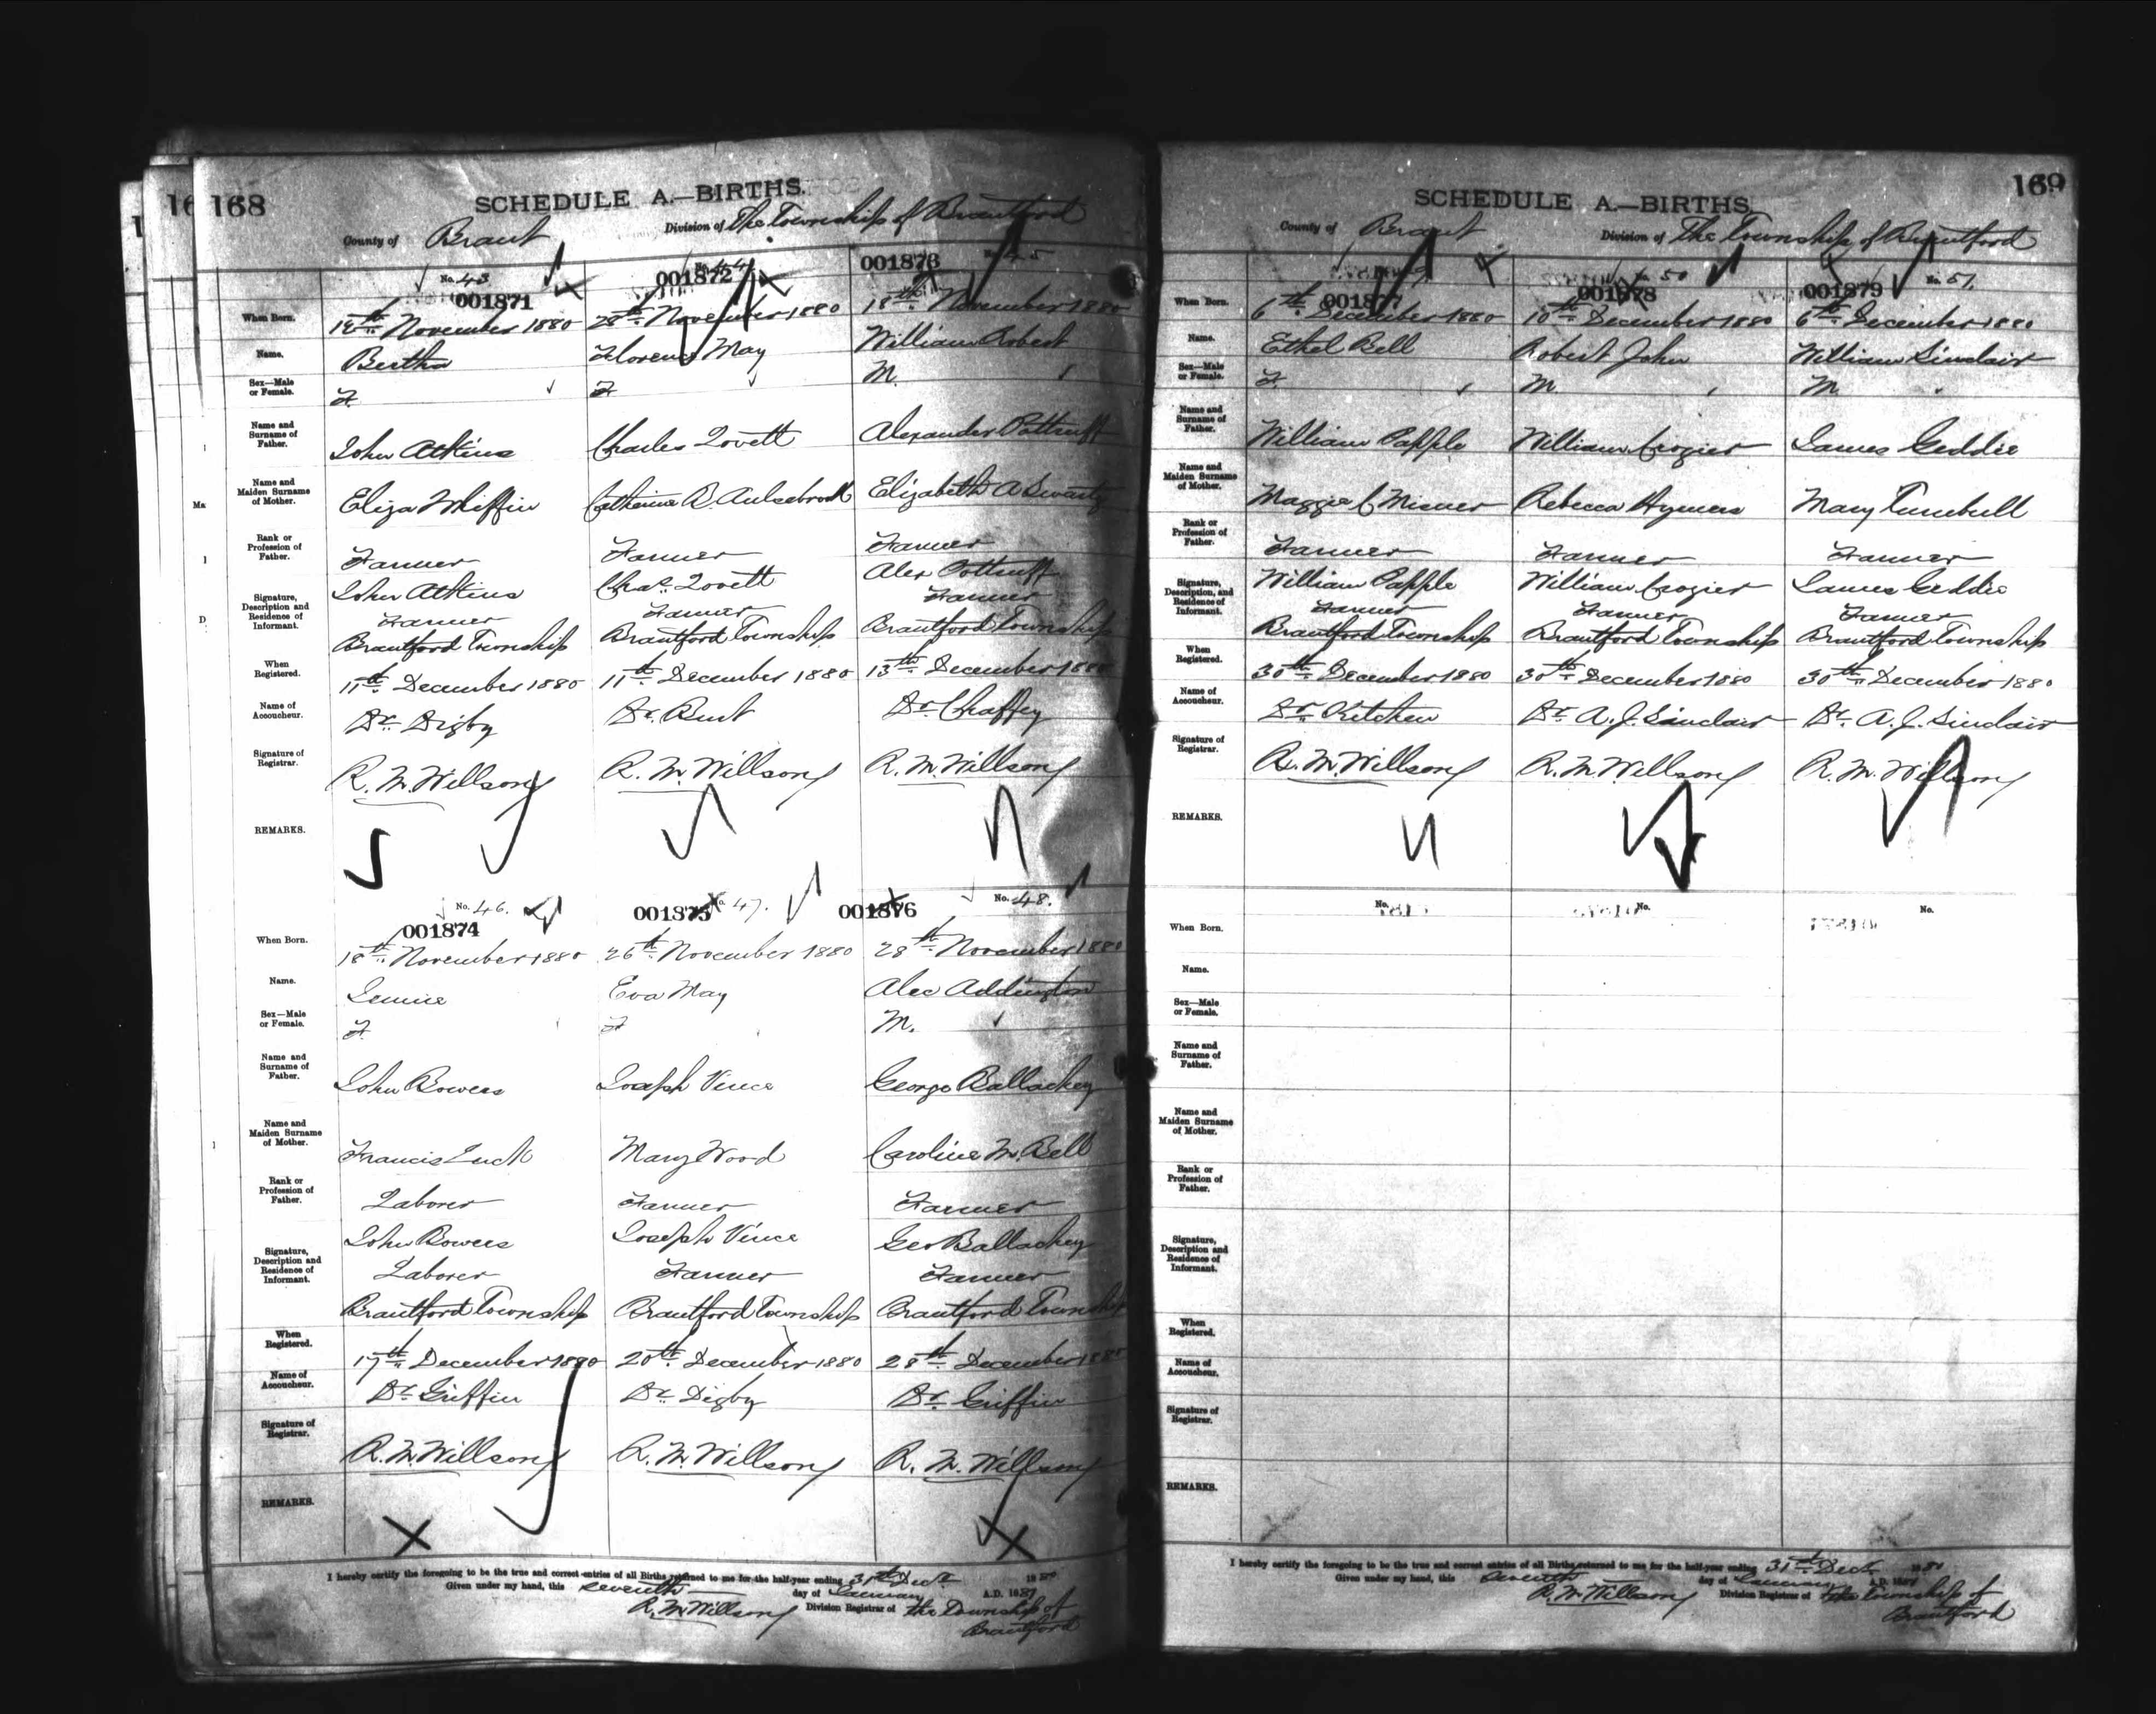 168
SCHEDULE A.—BIRTHS.
County of Brant Division of The Township of Brantford
No. 43 001871
001872 No. 44
001873 No. 45
When Born. 12th November 1880 28th November 1880 18th November 1880
Name. Bertha Florence May William Robert
Sex—Male or Female. F. F M.
Name and Surname of Father. John Atkins Charles Lovett Alexander Pottruff
Name and Maiden Surname of Mother. Eliza Whiffin Catherine R. Aulsebrook Elizabeth A Swartz
Rank or Profession of Father. Farmer Farmer Farmer
Signature, Description and Residence of Informant. John Atkins Chas. Lovett Alex Pottruff
Farmer Farmer Farmer
Brantford Township Brantford Township Brantford Township
When Registered. 11th December 1880 11th December 1880 13th December 1880
Name of Accoucheur. Dr. Digby Dr. Burt Dr. Chaffey
Signature of Registrar. R. M. Willson R. M. Willson R. M. Willson
REMARKS.
No. 46. 001874
001875 No. 47.
001876 No. 48.
When Born. 18th November 1880 26th November 1880 28th November 1880
Name. Jennie Eva May Alec Addington
Sex—Male or Female. F. F M.
Name and Surname of Father. John Bowers Joseph Vince George Ballachey
Name and Maiden Surname of Mother. Francis Luck Mary Wood Caroline M. Bell
Rank or Profession of Father. Laborer Farmer Farmer
Signature, Description and Residence of Informant. John Bowers Joseph Vince Geo Ballachey
Laborer Farmer Farmer
Brantford Township Brantford Township Brantford Township
When Registered. 17th December 1880 20th December 1880 28th December 1880
Name of Accoucheur. Dr. Griffin Dr. Digby Dr. Griffin
Signature of Registrar. R. M. Willson R. M. Willson R. M. Willson
REMARKS.
I hereby certify the foregoing to be the true and correct entries of all Births returned to me for the half-year ending 31st Decr. 1880
Given under my hand, this seventh day of January A.D. 1881
R. M. Willson Division Registrar of the Township of
Brantford
169
SCHEDULE A.—BIRTHS.
County of Brant Division of The Township of Brantford
001877
001878 No. 50
001879 No. 51.
When Born. 6th December 1880 10th December 1880 6th December 1880
Name. Ethel Bell Robert John William Sinclair
Sex—Male or Female. F M. M.
Name and Surname of Father. William Papple William Crozier James Geddie
Name and Maiden Surname of Mother. Maggie C Misner Rebecca Hymers Mary Turnbull
Rank or Profession of Father. Farmer Farmer Farmer
Signature, Description, and Residence of Informant. William Papple William Crozier James Geddie
Farmer Farmer Farmer
Brantford Township Brantford Township Brantford Township
When Registered. 30th December 1880 30th December 1880 30th December 1880
Name of Accoucheur. Dr. Kitchen Dr. A. J. Sinclair Dr. A. J. Sinclair
Signature of Registrar. R. M. Willson R. M. Willson R. M. Willson
REMARKS.
No. No. No.
When Born.
Name.
Sex—Male or Female.
Name and Surname of Father.
Name and Maiden Surname of Mother.
Rank or Profession of Father.
Signature, Description and Residence of Informant.
When Registered.
Name of Accoucheur.
Signature of Registrar.
REMARKS.
I hereby certify the foregoing to be the true and correct entries of all Births returned to me for the half-year ending 31st Decr. 1880
Given under my hand, this seventh day of January A.D. 1881
R. M. Willson Division Registrar of the Township of
Brantford